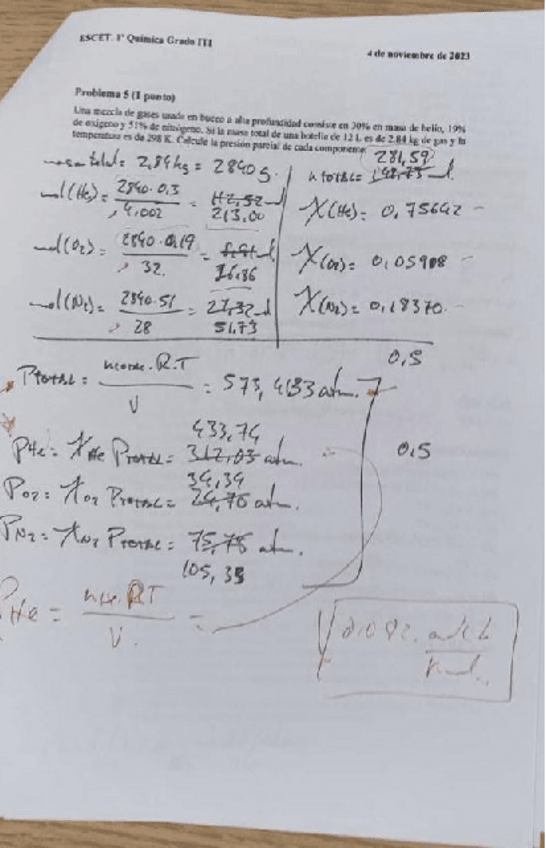 ESCET. 1º Química Grado ITI
4 de noviembre de 2023
Problema 5 (1 punto)
Una mezcla de gases usada en buceo a alta profundidad consiste en 30% en masa de helio, 19%
de oxígeno y 51% de nitrógeno. Si la masa total de una botella de 12 L es de 2.84 kg de gas y la
temperatura es de 298 K. Calcule la presión parcial de cada componente.
masa total = 2,84 kg = 2840 g.
281,59
n total =
mol (He) = 2840·0.3 / 4.002 = 213,00
X(He) = 0,75642
mol (O2) = 2840·0,19 / 32. = 16.86
X(O2) = 0,05988
mol (N2) = 2840·51 / 28 = 51,73
X(N2) = 0,18370
0,5
PTOTAL = nTOTAL.R.T / V = 573,4133 atm.
433,74
PHe = XHe PTOTAL = 312,03 atm.
0,5
34,34
PO2 = XO2 PTOTAL = 24,76 atm.
PN2 = XN2 PTOTAL = 75,78 atm.
105,35
PHe = nHe.RT / V. =
0.082. atm L